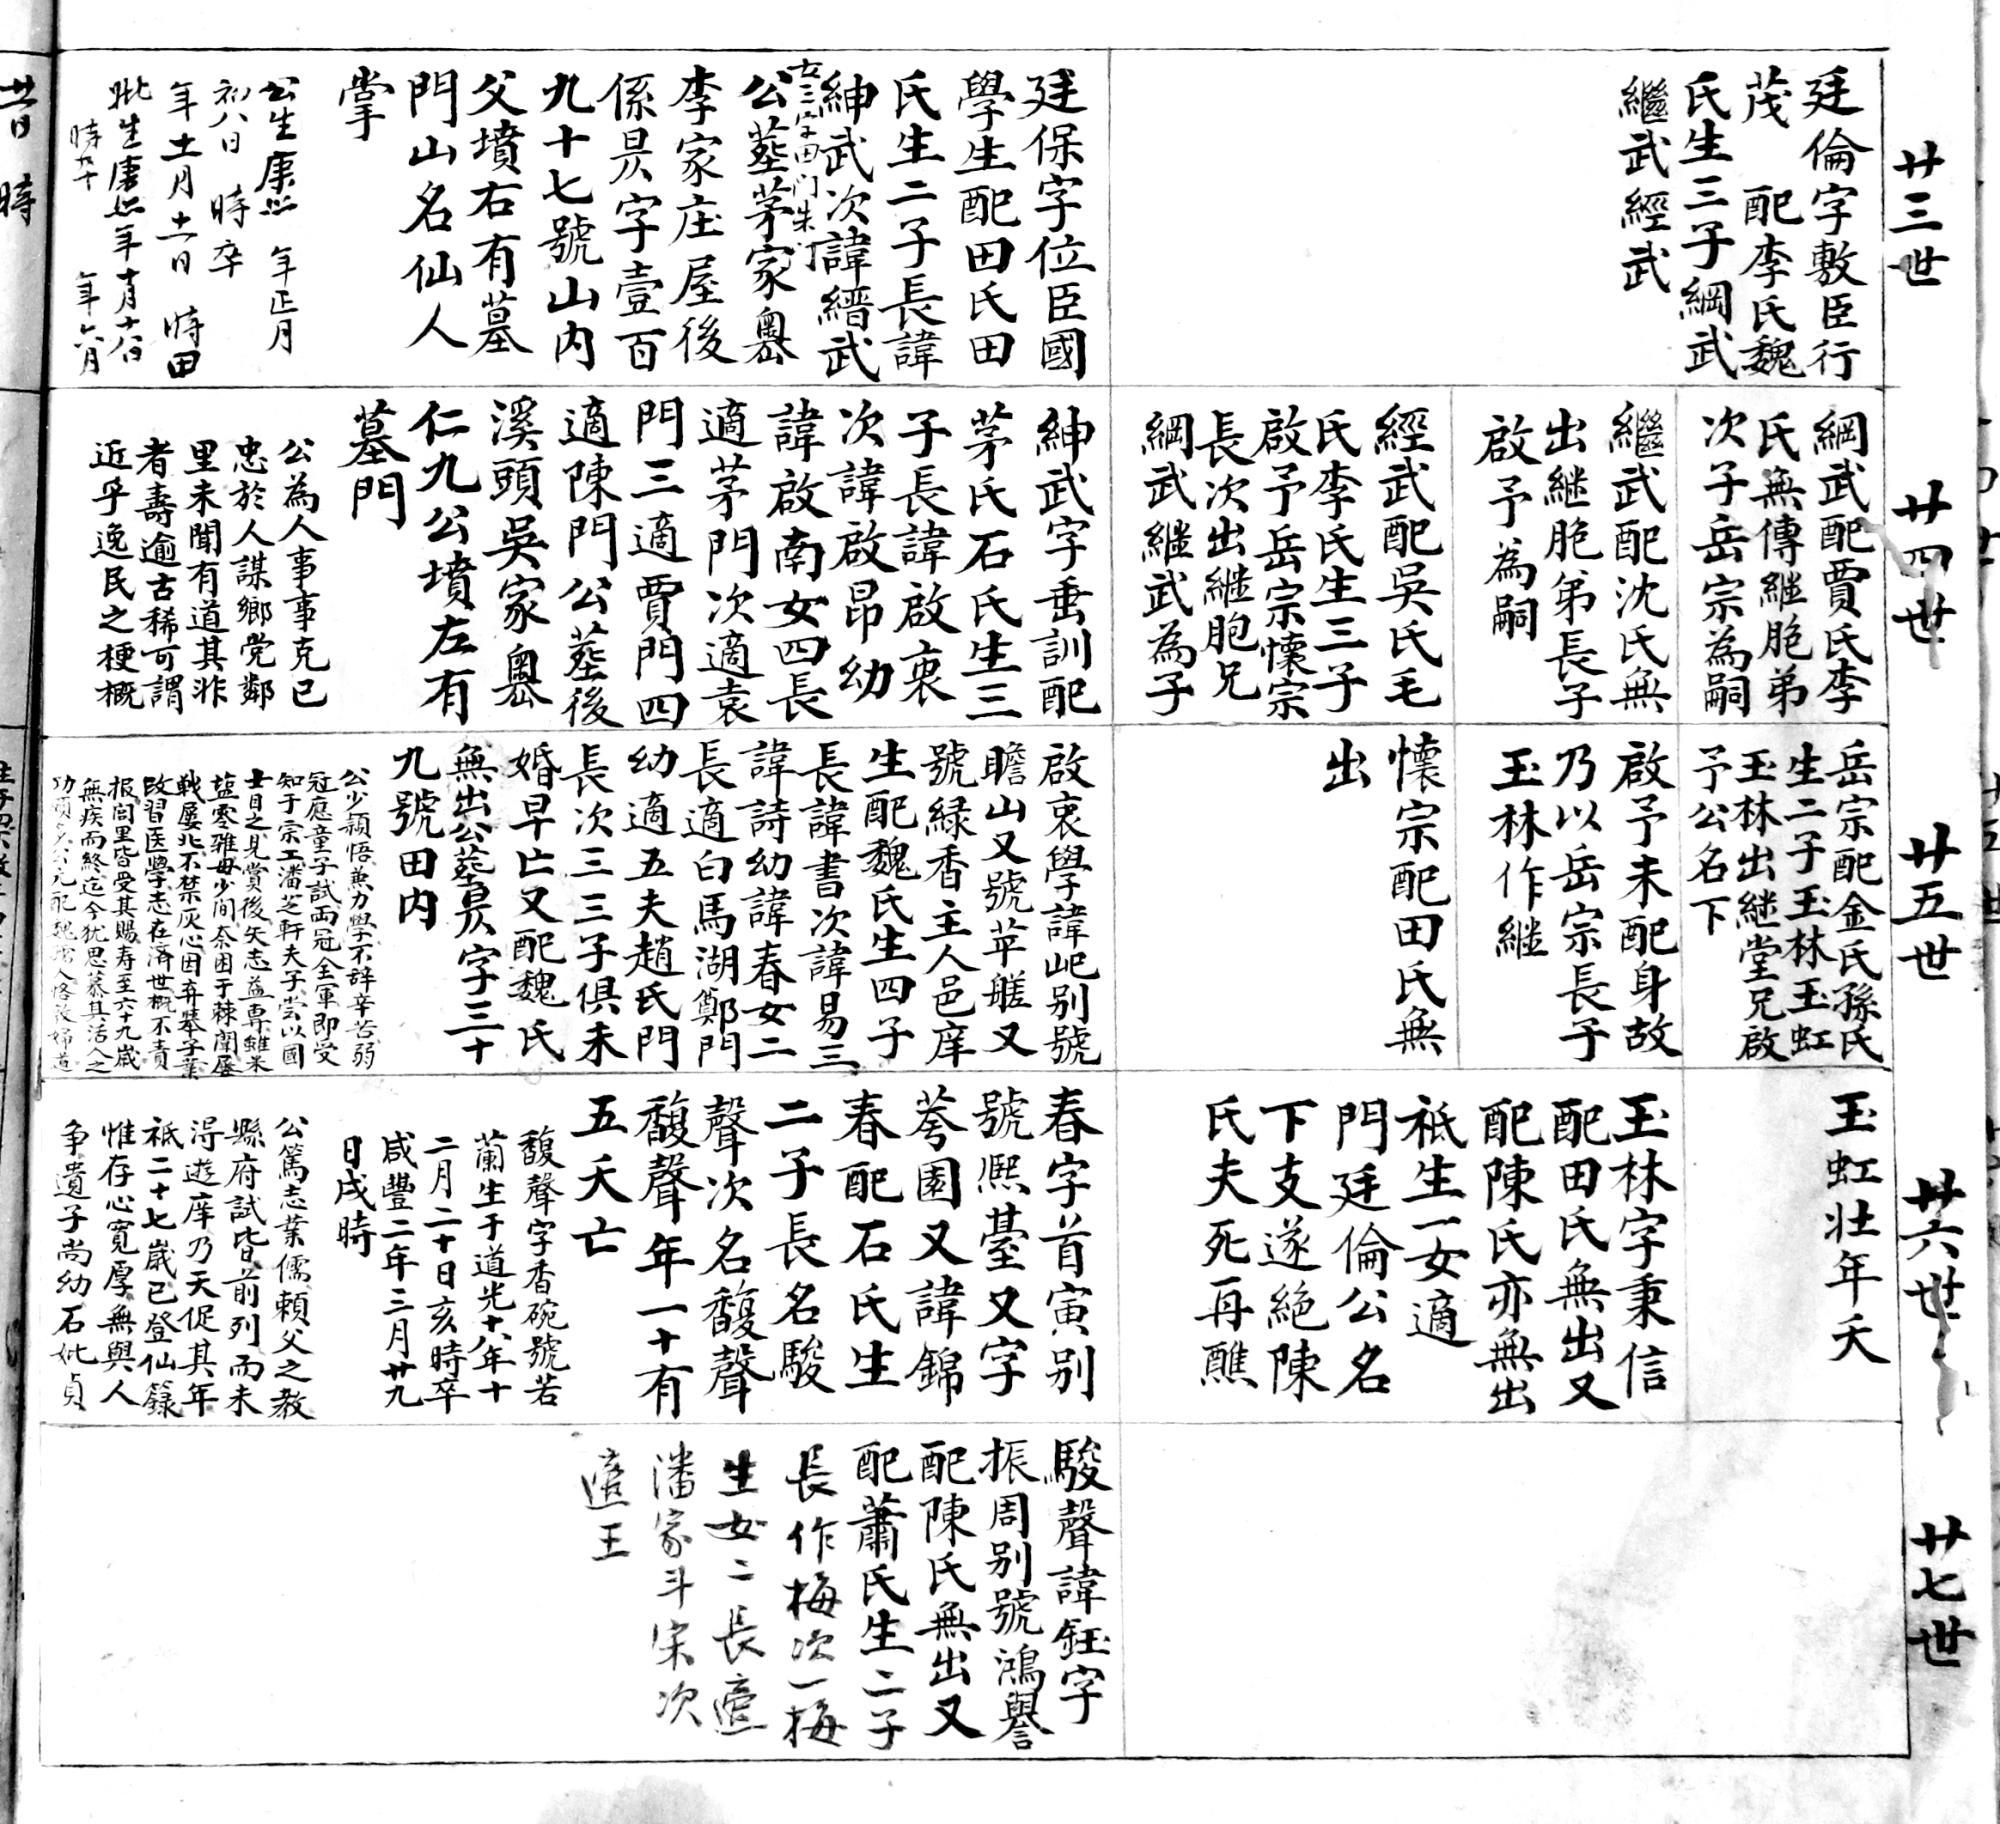 廿三世
廷倫字敷臣行
茂　配李氏魏
氏生三子綱武
繼武經武
廷保字位臣國
學生配田氏田
氏生二子長諱
紳武次諱縉武
女三字田門朱門
公墓茅家嶴
李家庄屋後
係昃字壹百
九十七號山內
父墳右有墓
門山名仙人
掌
公生康熙　年正月
初八日　時卒
年十一月十一日　時田
妣生康熙年十月十八日
時卒　年六月
廿四世
綱武配賈氏李
氏無傳継胞弟
次子岳宗為嗣
繼武配沈氏無
出継胞弟長子
啟予為嗣
經武配吳氏毛
氏李氏生三子
啟予岳宗懷宗
長次出継胞兄
綱武継武為子
紳武字垂訓配
茅氏石氏生三
子長諱啟衷
次諱啟昂幼
諱啟南女四長
適茅門次適袁
門三適賈門四
適陳門公墓後
溪頭吳家嶴
仁九公墳左有
墓門
公為人事事克已
忠於人謀鄉党鄰
里未聞有道其非
者壽逾古稀可謂
近乎逸民之梗概
廿五世
岳宗配金氏孫氏
生二子玉林玉虹
玉林出継堂兄啟
予公名下
啟予未配身故
乃以岳宗長子
玉林作継
懷宗配田氏無
出
啟衷學諱屺别號
瞻山又號苹艖又
號緑香主人邑庠
生配魏氏生四子
長諱書次諱易三
諱詩幼諱春女二
長適白馬湖鄭門
幼適五夫趙氏門
長次三三子俱未
婚早亡又配魏氏
無出公墓昃字三十
九號田內
公少穎悟兼力學不辞辛苦弱
冠應童子試両冠全軍即受
知于宗工潘芝軒夫子尝以國
士目之見賞後矢志益專雖米
塩零雜毋少间奈困于棘闈屢
戦屢北不禁灰心因弃舉子業
改習医學志在濟世概不責
报閭里皆受其賜寿至六十九歲
無疾而終迄今犹思慕其活人之
功頌
廿六世
玉虹壮年夭
玉林字秉信
配田氏無出又
配陳氏亦無出
祇生一女適
門廷倫公名
下支遂絶陳
氏夫死再醮
春字首寅别
號熈臺又字
蕚園又諱錦
春配石氏生
二子長名駿
聲次名馥聲
馥聲年一十有
五夭亡
馥聲字香碗號若
蘭生于道光十八年十
二月二十日亥時卒
咸豐二年三月廿九
日戌時
公篤志業儒賴父之教
縣府試皆前列而未
淂遊庠乃天促其年
祇二十七歲已登仙籙
惟存心寬厚無與人
争遺子尚幼石妣貞
廿七世
駿聲諱鈺字
振周别號鴻譽
配陳氏無出又
配蕭氏生二子
長作梅次一梅
生女二長適
潘家斗宋次
適王
廿日　時